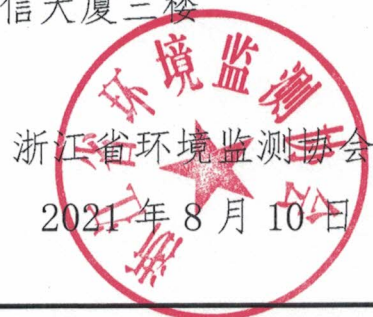 信大厦三楼
浙江省环境监测协会
2021 年 8 月 10 日
浙江省环境监测协会